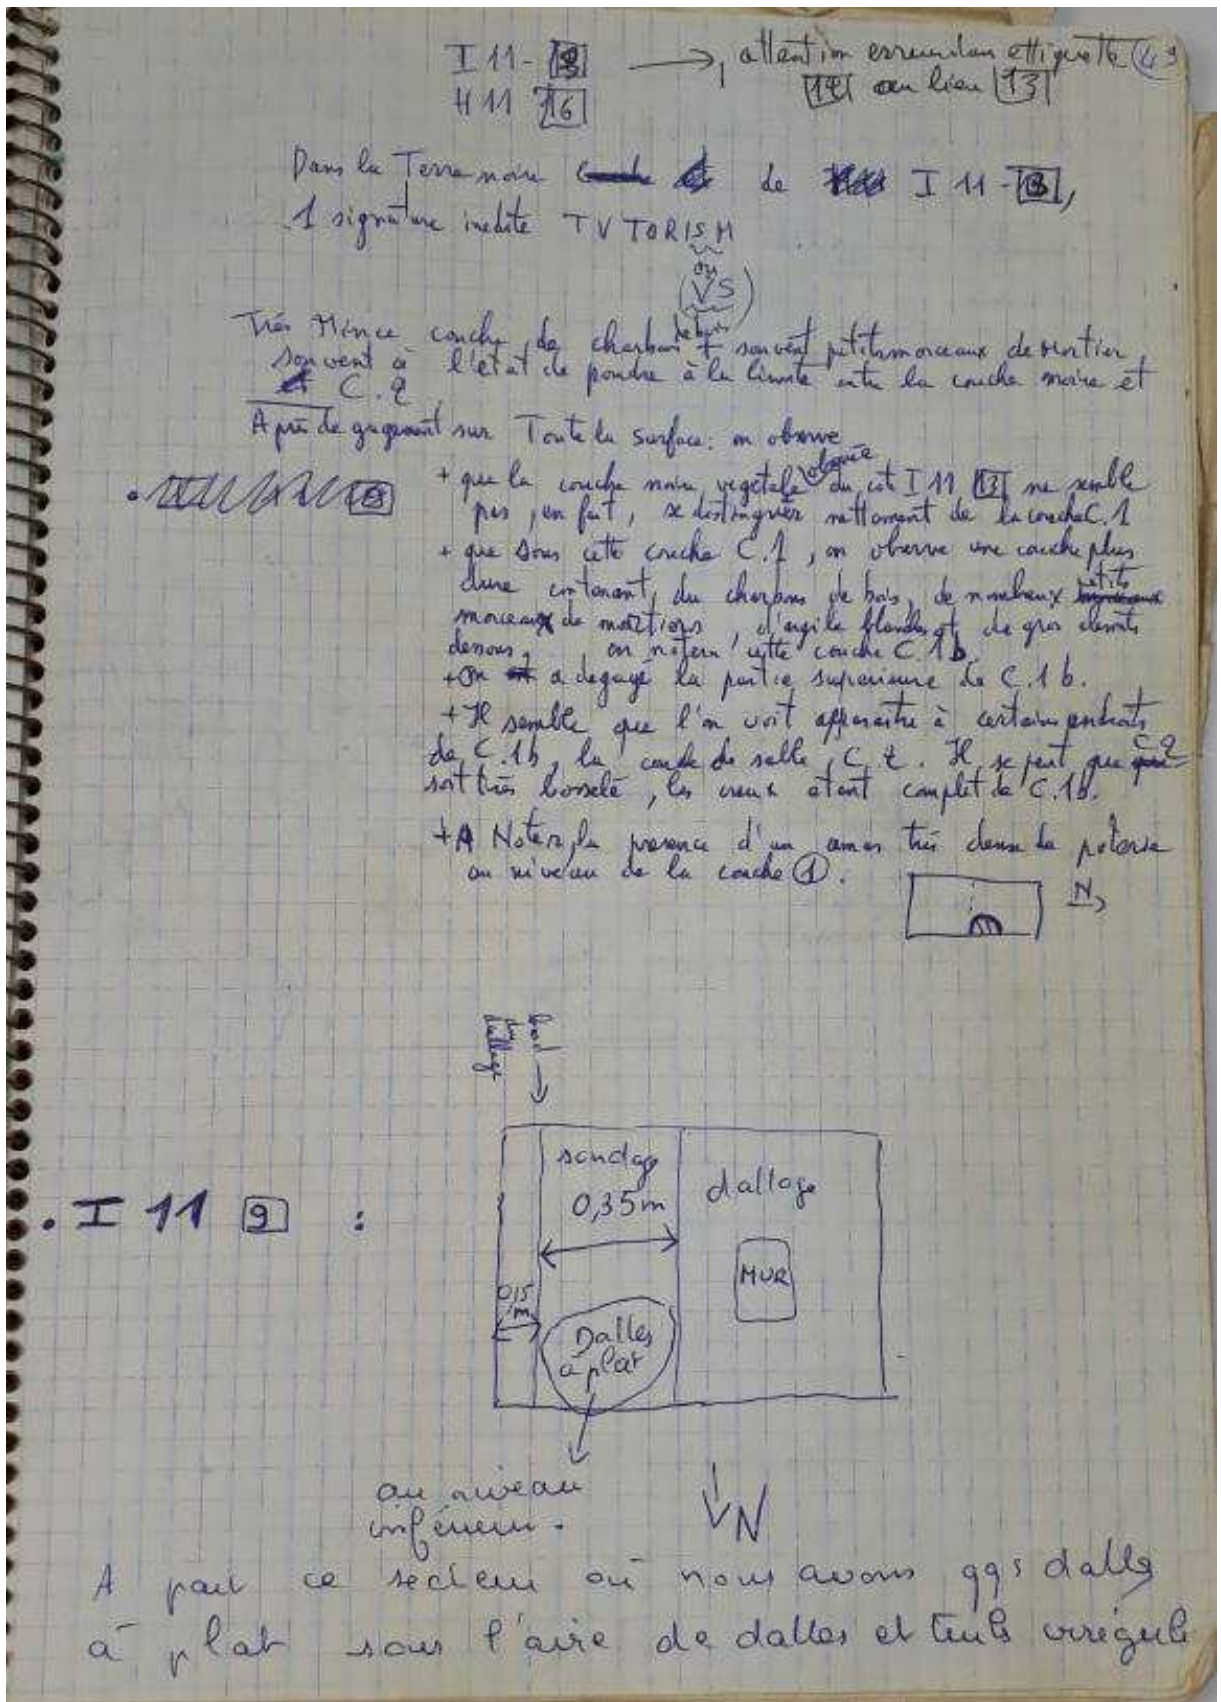 I 11 - 13 → attention erreur dan ettiquette 49
H 11 16 14 au lieu 13
Dans la Terre noire de I 11 - 13,
1 signature inedite TVTORISM
ou
(VS)
Très Mince couche de charbon de bois + souvent petits morceaux de mortier,
souvent à l'état de poudre à la limite entre la couche noire et
C.2
Après degagement sur Toute la surface: on observe
+ que la couche noire vegetale du coté I 11 13 ne semble
pas, en fait, se distinguer nettement de la couche C.1
+ que sous cette couche C.1, on observe une couche plus
dure contenant du charbons de bois, de nombreux petits
morceaux de mortiers, d'argile blanche et de gros elements
dessous, on notera cette couche C.1b.
+ On a degagé la partie superieure de C.1b.
+ Il semble que l'on voit apparaitre à certains endroits
de C.1b, la couche de sable, C.2. Il se peut que C.2
soit très bosselé, les creux etant complet de C.1b.
+ A Noter, la presence d'un amas très dense de poterie
au niveau de la couche 1.
N
bord
du
dallage
sondage
0,35m
dallage
. I 11 9 :
MUR
0,15
m
Dalles
à plat
au niveau
inférieur.
N
A part ce secteur où nous avons qqs dalles
à plat sous l'aire de dalles et irréguli